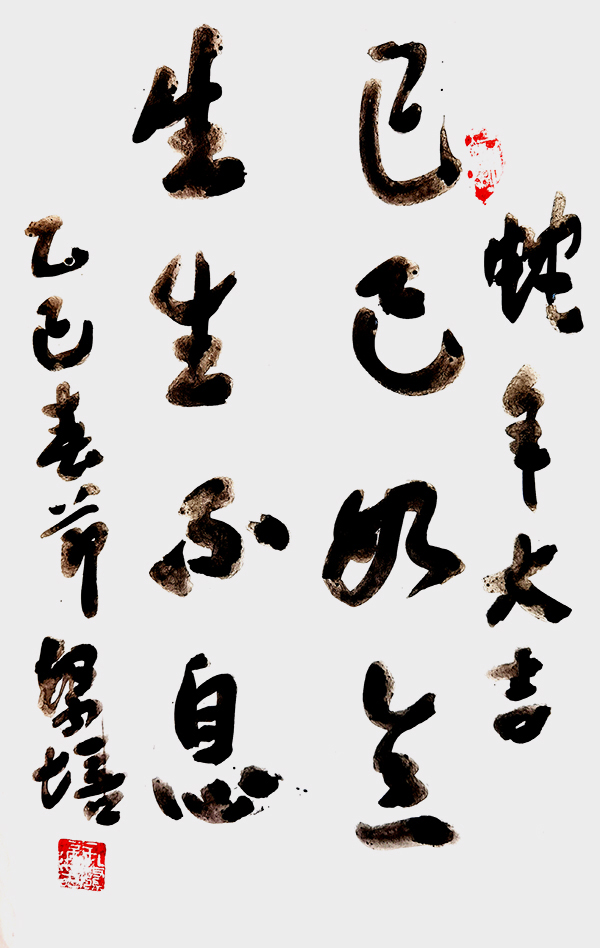 蛇年大吉
巳巳如意
生生不息
乙巳春节 培